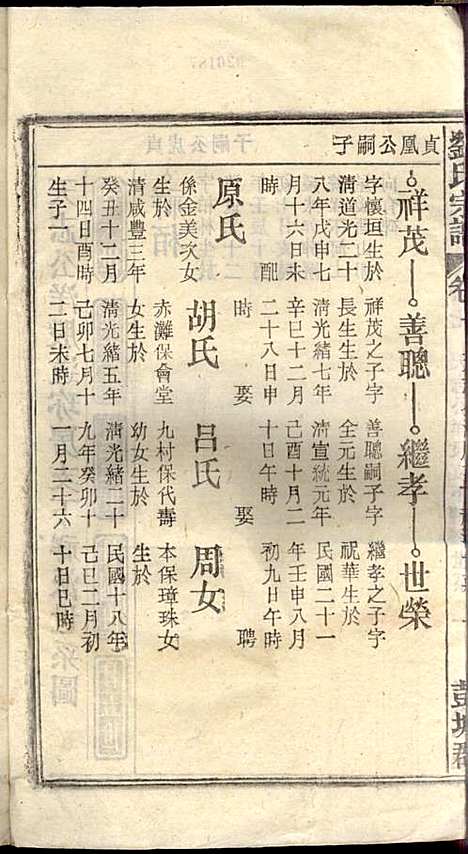 劉氏宗譜
彭城郡
貞凰公嗣子
祥茂
善聰
繼孝
世榮
字懷垣生於
清道光二十
八年戊申七
月十六日未
時 配
原氏
係金美次女
生於
清咸豐三年
癸丑十二月
十四日酉時
生子一
祥茂之子字
長生生於
清光緒七年
辛巳十二月
二十八日申
時 娶
胡氏
赤灘保會堂
女生於
清光緒五年
己卯七月十
二日未時
善聰嗣子字
全元生於
清宣統元年
己酉十月二
十日午時
娶
呂氏
九村保代壽
幼女生於
清光緒二十
九年癸卯十
一月二十六
繼孝之子字
祝華生於
民國二十一
年壬申八月
初九日午時
聘
周女
本保璋珠女
生於
民國十八年
己巳二月初
十日巳時